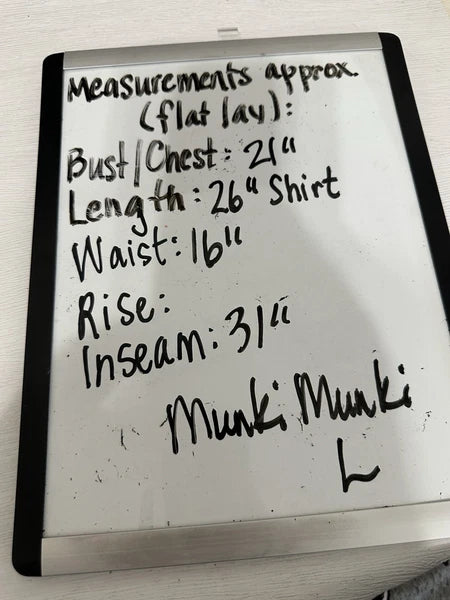 Measurements approx.
(flat lay):
Bust/Chest: 21"
Length: 26" Shirt
Waist: 16"
Rise:
Inseam: 31"
Munki Munki
L